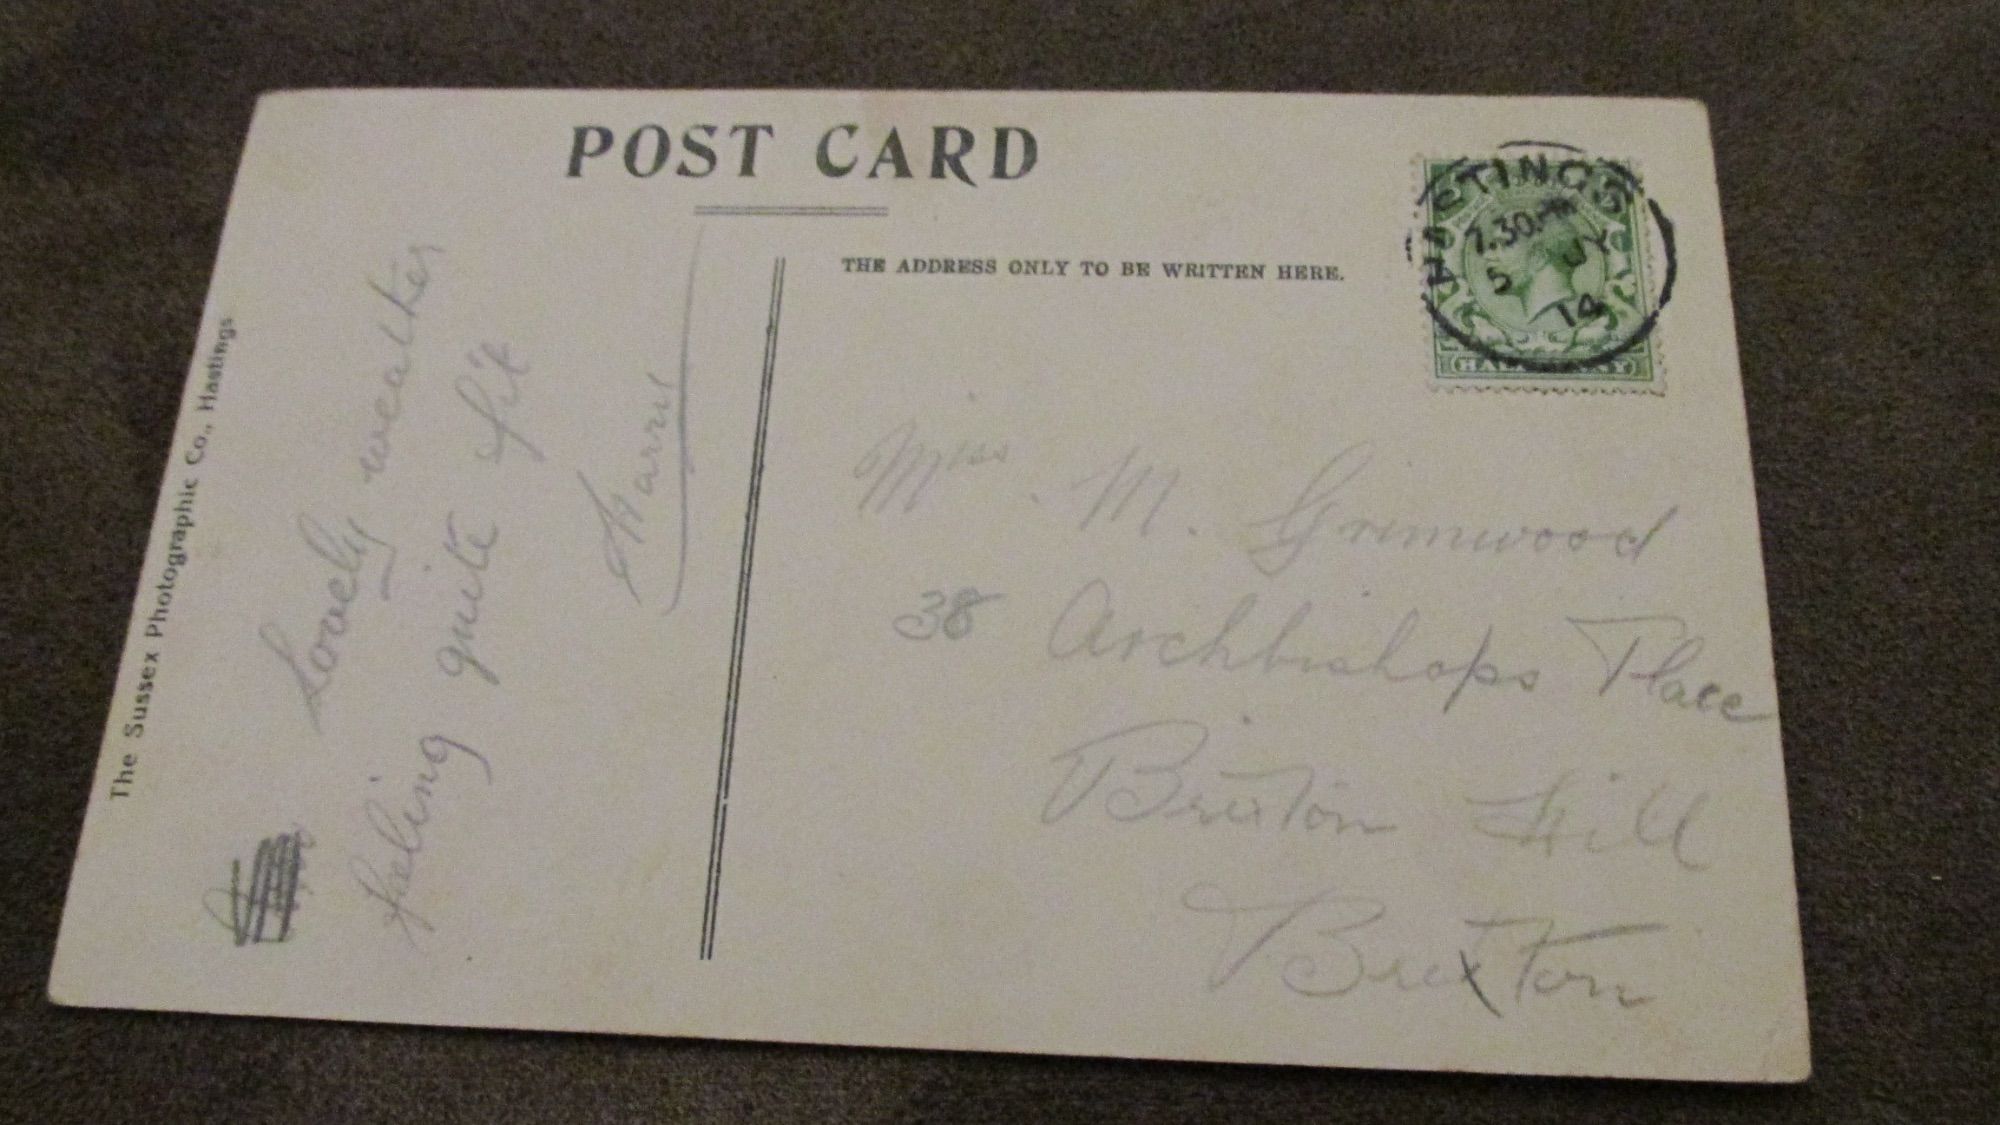 POST CARD
THE ADDRESS ONLY TO BE WRITTEN HERE.
HASTINGS
7.30 PM
5 JY
14
HALFPENNY
The Sussex Photographic Co., Hastings
Lovely weather
feeling quite fit
Harry
Miss. M. Grimwood
38 Archbishops Place
Brixton Hill
Brixton